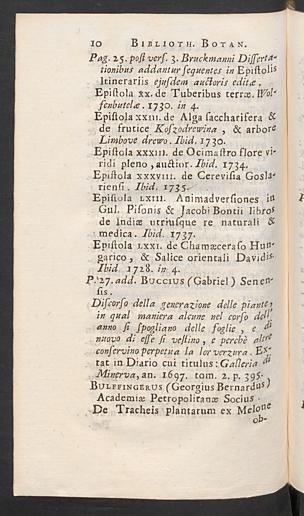 10 BIBLIOTH. BOTAN.
Pag. 25. post vers. 3. Bruckmanni Disserta-
tionibus addantur sequentes in Epistolis
Itinerariis ejusdem auctoris editæ.
Epistola XX. de Tuberibus terræ. Wol-
fenbutelæ. 1730. in 4.
Epistola XXIII. de Alga saccharifera &
de frutice Koszodrewina, & arbore
Limbove drewo. Ibid. 1730.
Epistola XXXIII. de Ocimastro flore vi-
ridi pleno, auctior. Ibid. 1734.
Epistola XXXVIII. de Cerevisia Gosla-
riensi. Ibid. 1735.
Epistola LXIII. Animadversiones in
Gul. Pisonis & Jacobi Bontii libros
de Indiæ utriusque re naturali &
medica. Ibid. 1737.
Epistola LXXI. de Chamæceraso Hun-
garico, & Salice orientali Davidis.
Ibid. 1728. in 4.
P. 27. add. BUCCIUS (Gabriel) Senen-
sis.
Discorso della generazione delle piante,
in qual maniera alcune nel corso dell'
anno si spogliano delle foglie, e di
nuovo di esse si vestino, e perchè altre
conservino perpetua la lor verzura. Ex-
tat in Diario cui titulus: Galleria di
Minerva, an. 1697. tom. 2. p. 395.
BULFFINGERUS (Georgius Bernardus)
Academiæ Petropolitanæ Socius.
De Tracheis plantarum ex Melone
ob-